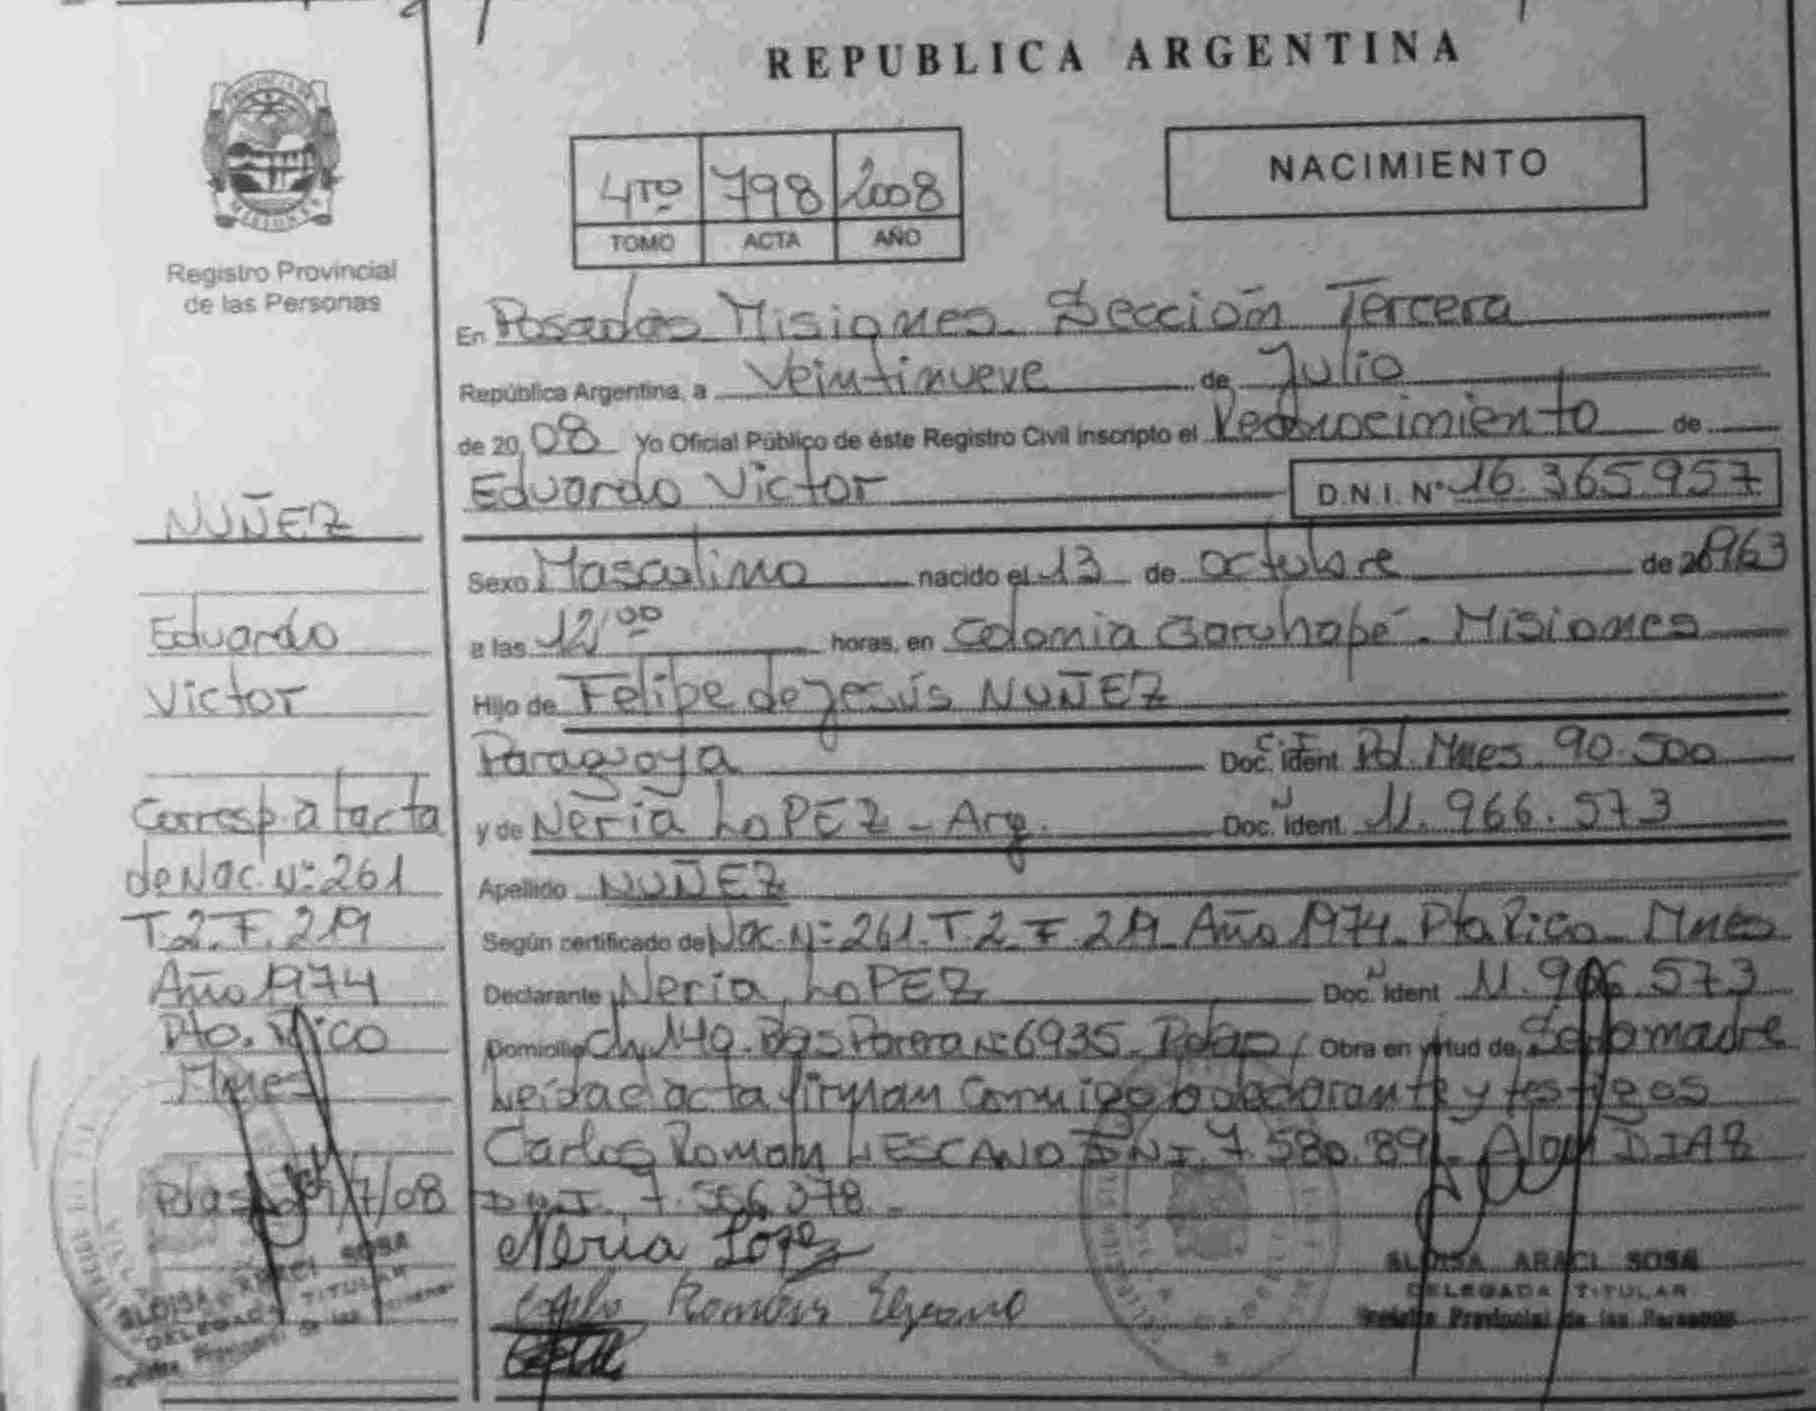 REPUBLICA ARGENTINA
NACIMIENTO
4TO 798 2008
TOMO ACTA AÑO
Registro Provincial
de las Personas
En Posadas Misiones Sección Tercera
República Argentina, a Veintinueve de Julio
de 20 08 Yo Oficial Público de éste Registro Civil inscripto el Reconocimiento de
Eduardo Victor D.N.I. Nº 16.365.957
Sexo Masculino nacido el 13 de octubre de 1963
a las 12,00 horas, en Colonia Garuhapé - Misiones
Hijo de Felipe de Jesús NUÑEZ
Paraguaya Doc. Ident. C.I. Pol. Mnes 90.500
y de Neria LOPEZ - Arg. Doc. Ident. 11.966.573
Apellido NUÑEZ
Según certificado de Nac. Nº 261. T.2. F. 219 Año 1974. Pto Rico - Mnes
Declarante Neria LOPEZ Doc. Ident 11.966.573
Domicilio Ch. 149. Nº 6935 Obra en virtud de Ser la madre
Leída el acta firman conmigo la declarante y testigos
Carlos Roman LESCANO DNI. 7.580.891 - DIAZ
D.N.I. 7.556.078.-
Neria López
Roman
NUÑEZ
Eduardo
Victor
Corresp. a l'acta
de Nac. Nº 261
T.2. F. 219
Año 1974
Pto. Rico
Mnes
/7/08
ELOISA ARACI SOSA
DELEGADA TITULAR
Provincial de las Personas
ELOISA ARACI SOSA
DELEGADA TITULAR
Registro Provincial de las Personas